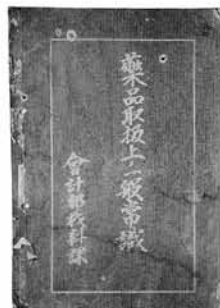 藥品取扱上一般常識
會計部材料課